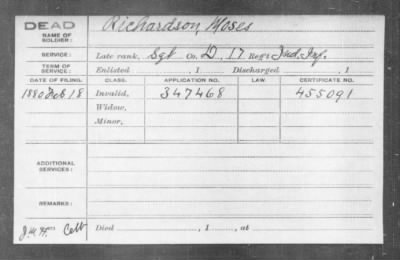 DEAD
NAME OF SOLDIER: Richardson, Moses
SERVICE: Late rank, Sgt Co. D, 17 Reg't Ind. Inf.
TERM OF SERVICE: Enlisted , 1 Discharged , 1
DATE OF FILING. CLASS. APPLICATION NO. LAW CERTIFICATE NO.
1880 Feb 18 Invalid, 347468 455091
Widow,
Minor,
ADDITIONAL SERVICES:
REMARKS:
Died , 1 , at